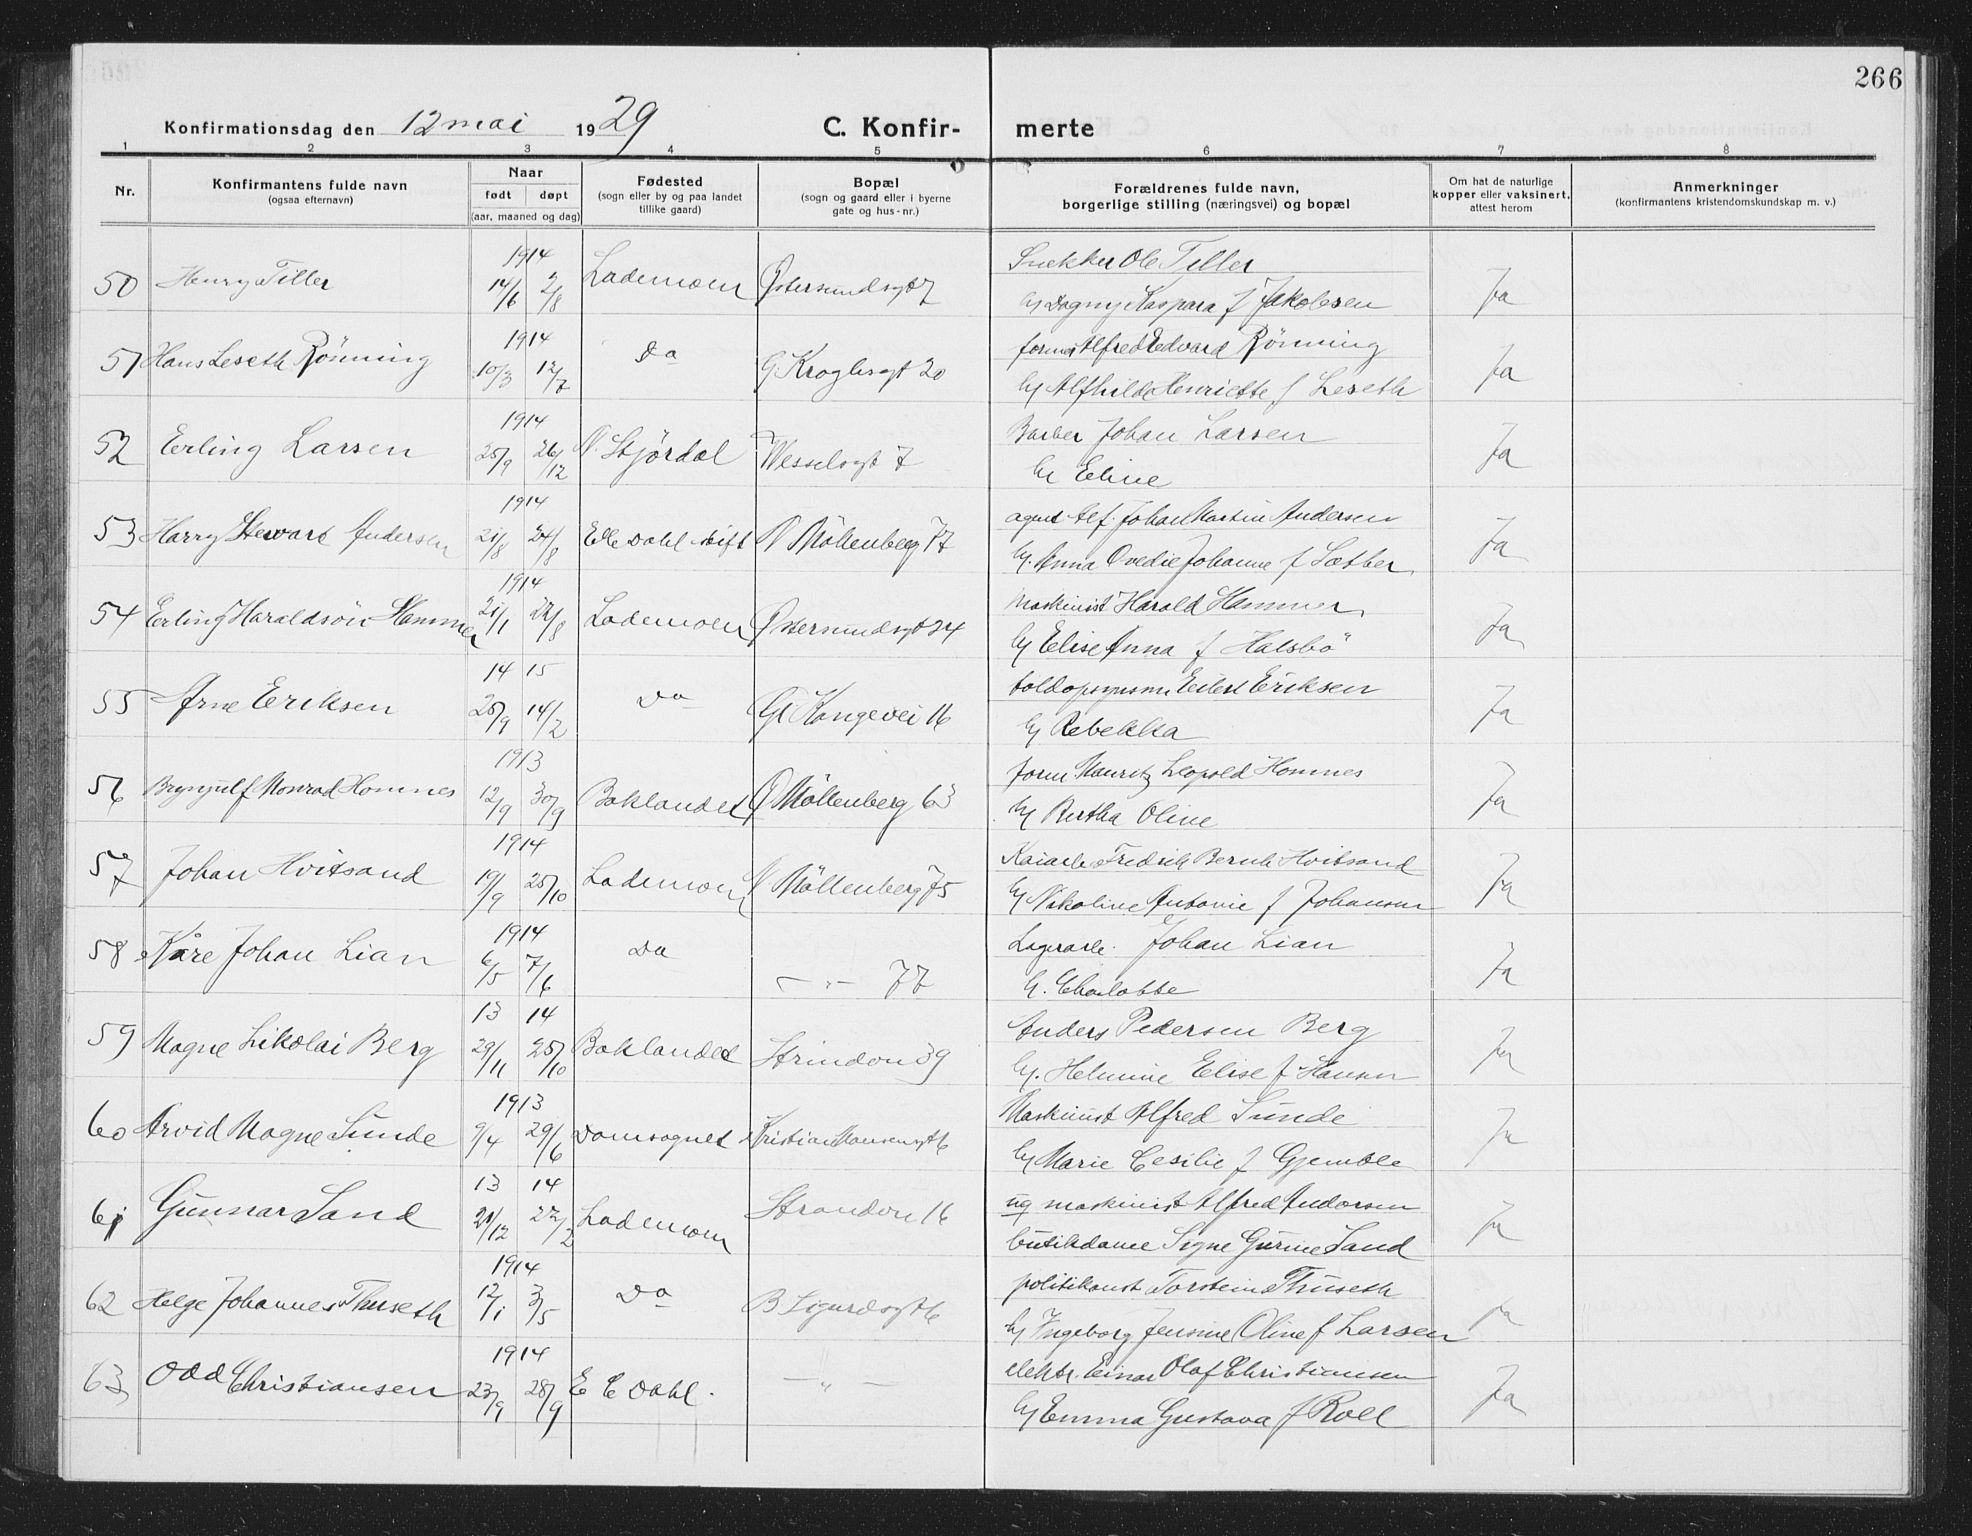 266
Konfirmationsdag den 12 mai 1929 C. Konfirmerte
1 2 3 4 5 6 7 8
Nr.
Konfirmantens fulde navn
(ogsaa efternavn)
Naar
født døpt
(aar, maaned og dag)
Fødested
(sogn eller by og paa landet
tillike gaard)
Bopæl
(sogn og gaard eller i byerne
gate og hus-nr.)
Forældrenes fulde navn,
borgerlige stilling (næringsvei) og bopæl
Om hat de naturlige
kopper eller vaksinert,
attest herom
Anmerkninger
(konfirmantens kristendomskundskap m. v.)
1914 Snekker Ole Tiller
50 Henry Tiller 14/6 2/8 Lademoen Østersundsgt 7 Ja
Dagny Kaspara f Jakobsen
1914 former Alfred Edvard Rönning
51 Hans Leseth Rönning 10/3 12/7 Do G Kroghsgt 20 Ja
Alfhilde Henriette f Leseth
1914 Barber Johan Larsen
52 Erling Larsen 25/9 26/12 N. Stjördal Wesselsgt 7 Ja
Eline
1914 agent Alf. Johan Martin Andersen
53 Harry Stewart Andersen 21/8 24/8 E C Dahl stift N Möllenberg 77 Ja
Anna Ovedie Johanne f Sæther
1914 Maskinist Harald Hammer
54 Erling Haraldsön Hammer 21/1 22/8 Lademoen Østersundsgt 24 Ja
Elise Anna f Halsbö
14 15 Eilert Eriksen
55 Arne Eriksen 25/9 14/2 Do Gl Kongevei 16 Ja
Rebekka
1913 form. Mauritz Leopold Hommes
56 Brynjulf Monrad Hommes 12/9 30/9 Baklandet Ø Möllenberg 63 Ja
Bertha Oline
1914 Kaiarb Fredrik Bernh Hvitsand
57 Johan Hvitsand 19/9 25/10 Lademoen N Möllenberg 75 Ja
Nikoline Antonie f Johansen
1914 Lagerarb. Johan Lian
58 Kåre Johan Lian 6/5 7/6 Do - " - 77 Ja
Charlotte
13 14 Anders Pedersen Berg
59 Magne Nikolai Berg 29/11 25/10 Baklandet Strindvn 39 Ja
Helmine Elise f Hansen
1913 Maskinist Alfred Sunde
60 Arvid Magne Sunde 9/4 29/6 Domsognet Kristian Monsensgt 6 Ja
Marie Cesilie f Gjemble
13 14 ug maskinist Alfred Andersen
61 Gunnar Sand 21/12 22/2 Lademoen Strandvn 16 Ja
butikdame Signe Gurine Sand
1914 politikonst Torstein Thuseth
62 Helge Johannes Thuseth 12/1 3/5 Do B Sigurdsgt 6 Ja
Ingeborg Jensine Oline f Larsen
1914 elektr. Einar Olaf Christiansen
63 Odd Christiansen 23/9 28/9 E C Dahl. - " - Ja
Emma Gustava f Roll